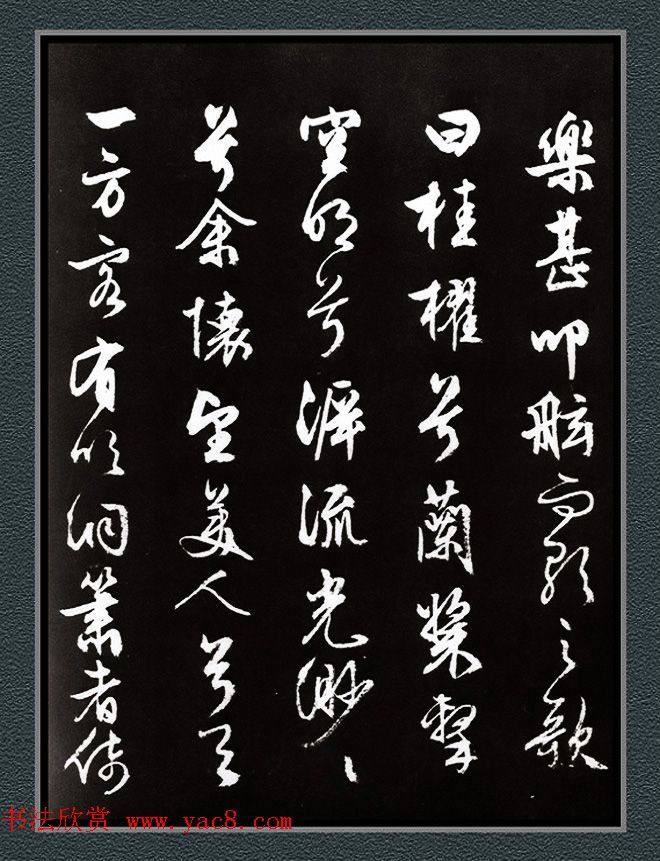 樂甚叩舷而歌之歌
曰桂櫂兮蘭槳擊
空明兮泝流光渺〻
兮余懷望美人兮天
一方客有吹洞簫者倚
书法欣赏 www.yac8.com